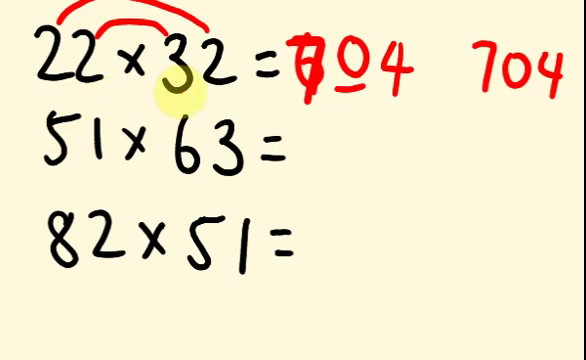 22 × 32 = 04 704
51 × 63 =
82 × 51 =